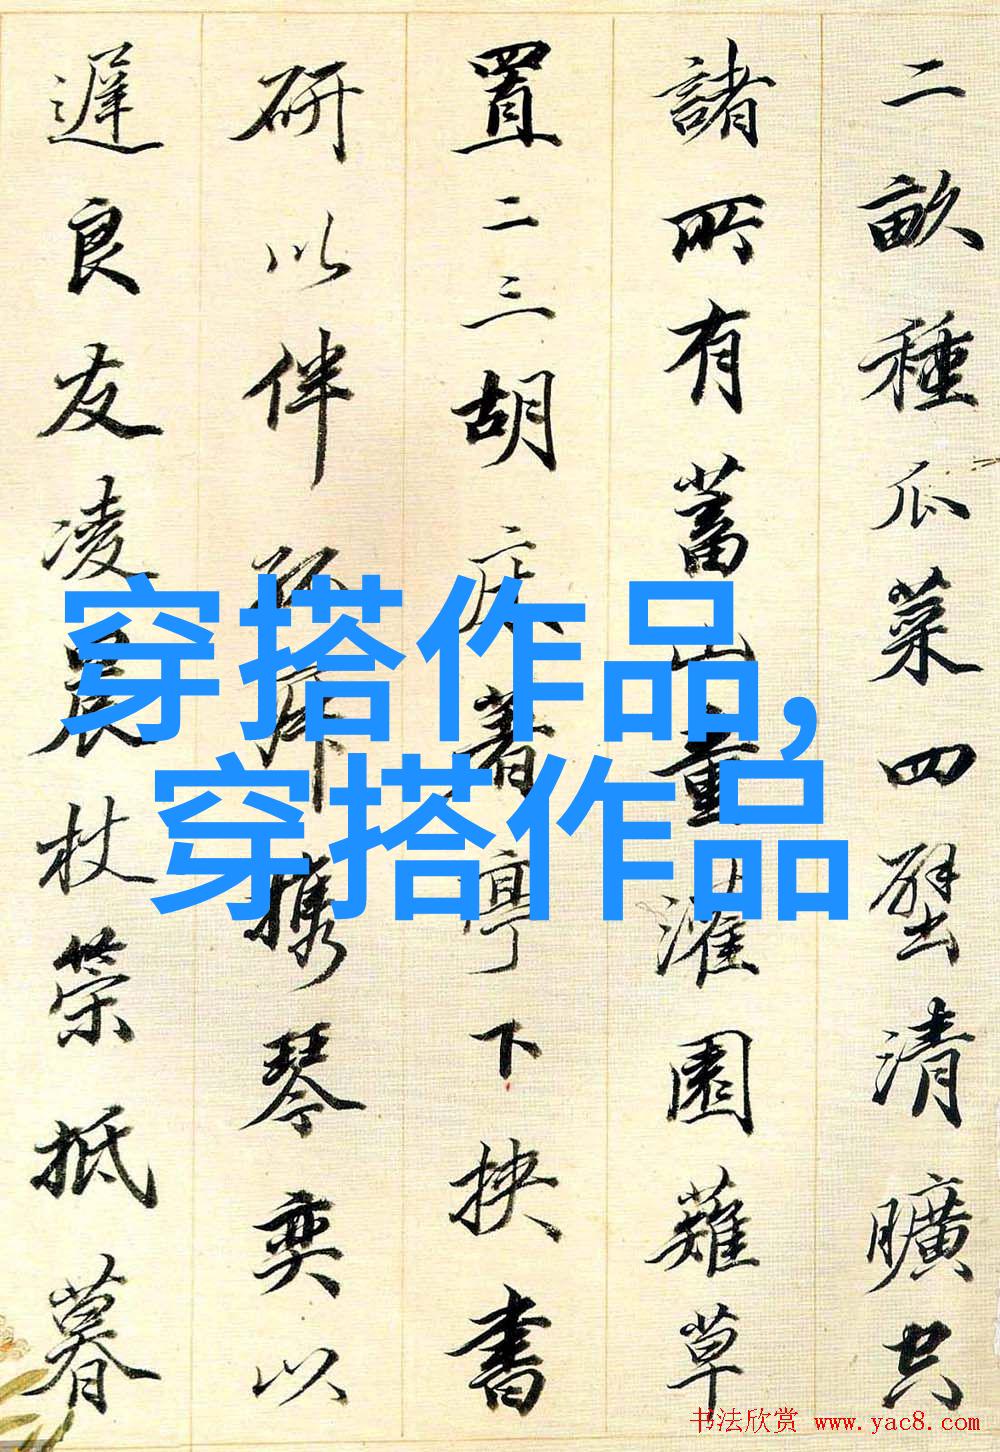 二畝種瓜菜四壁清曠共
諸所有蓄山童灌園薙草
置二三胡床著亭下挾書
研以伴孤寂攜琴奕以
遲良友凌晨杖策抵暮
穿搭作品,
穿搭作品
书法欣赏 www.yac8.com